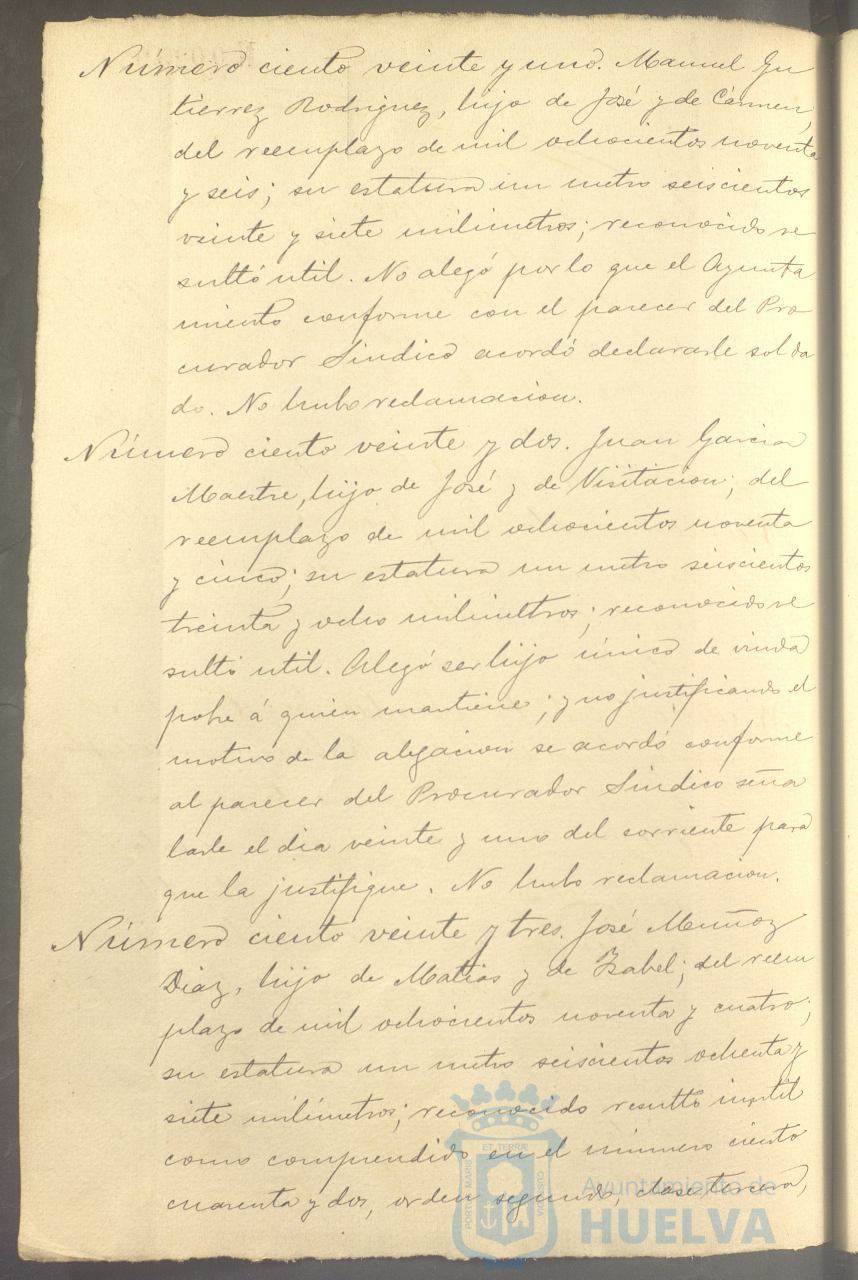 Número ciento veinte y uno. Manuel Gu
tierrez Rodriguez, hijo de José y de Cármen,
del reemplazo de mil ochocientos noventa
y seis; su estatura un metro seiscientos
veinte y siete milimetros; reconocido re
sultó util. No alegó por lo que el Ayunta
miento conforme con el parecer del Pro
curador Sindico acordó declararle solda
do. No hubo reclamacion.
Número ciento veinte y dos. Juan Garcia
Maestre, hijo de José y de Visitacion; del
reemplazo de mil ochocientos noventa
y cinco; su estatura un metro seiscientos
treinta y ocho milimetros; reconocido re
sultó util. Alegó ser hijo único de viuda
pobre á quien mantiene; y no justificando el
motivo de la alegacion se acordó conforme
al parecer del Procurador Sindico seña
larle el dia veinte y uno del corriente para
que la justifique. No hubo reclamacion.
Número ciento veinte y tres. José Muñoz
Diaz, hijo de Matias y de Isabel; del reem
plazo de mil ochocientos noventa y cuatro;
su estatura un metro seiscientos ochenta y
siete milímetros; reconocido resultó inútil
como comprendido en el número ciento
cuarenta y dos, orden segundo, clase tercera,
PORTUS MARIS ET TERRÆ CUSTODIA
Ayuntamiento de
HUELVA